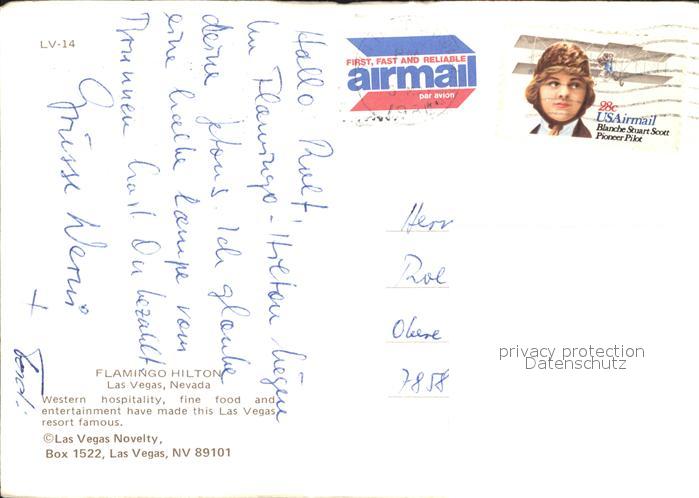 LV-14
FIRST, FAST AND RELIABLE
airmail
par avion
28c
USAirmail
Blanche Stuart Scott
Pioneer Pilot
Hallo Rolf!
Im Flamingo-Hilton liegen
deine Jetons. Ich glaube
eine halbe Lampe vom
Brunnen hast Du bezahlt
Grüsse Werni
+
Herr
Obere
7858
privacy protection
Datenschutz
FLAMINGO HILTON
Las Vegas, Nevada
Western hospitality, fine food and
entertainment have made this Las Vegas
resort famous.
©Las Vegas Novelty,
Box 1522, Las Vegas, NV 89101